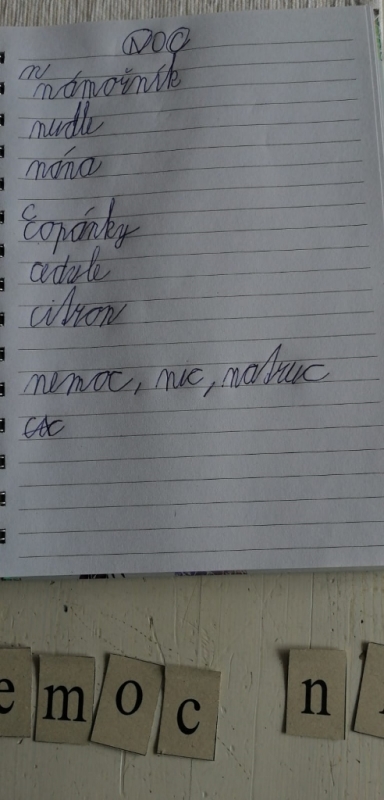 NOC
n
námořník
nudle
nána
c
copánky
cedule
citron
nemoc, nic, natruc
emoc n